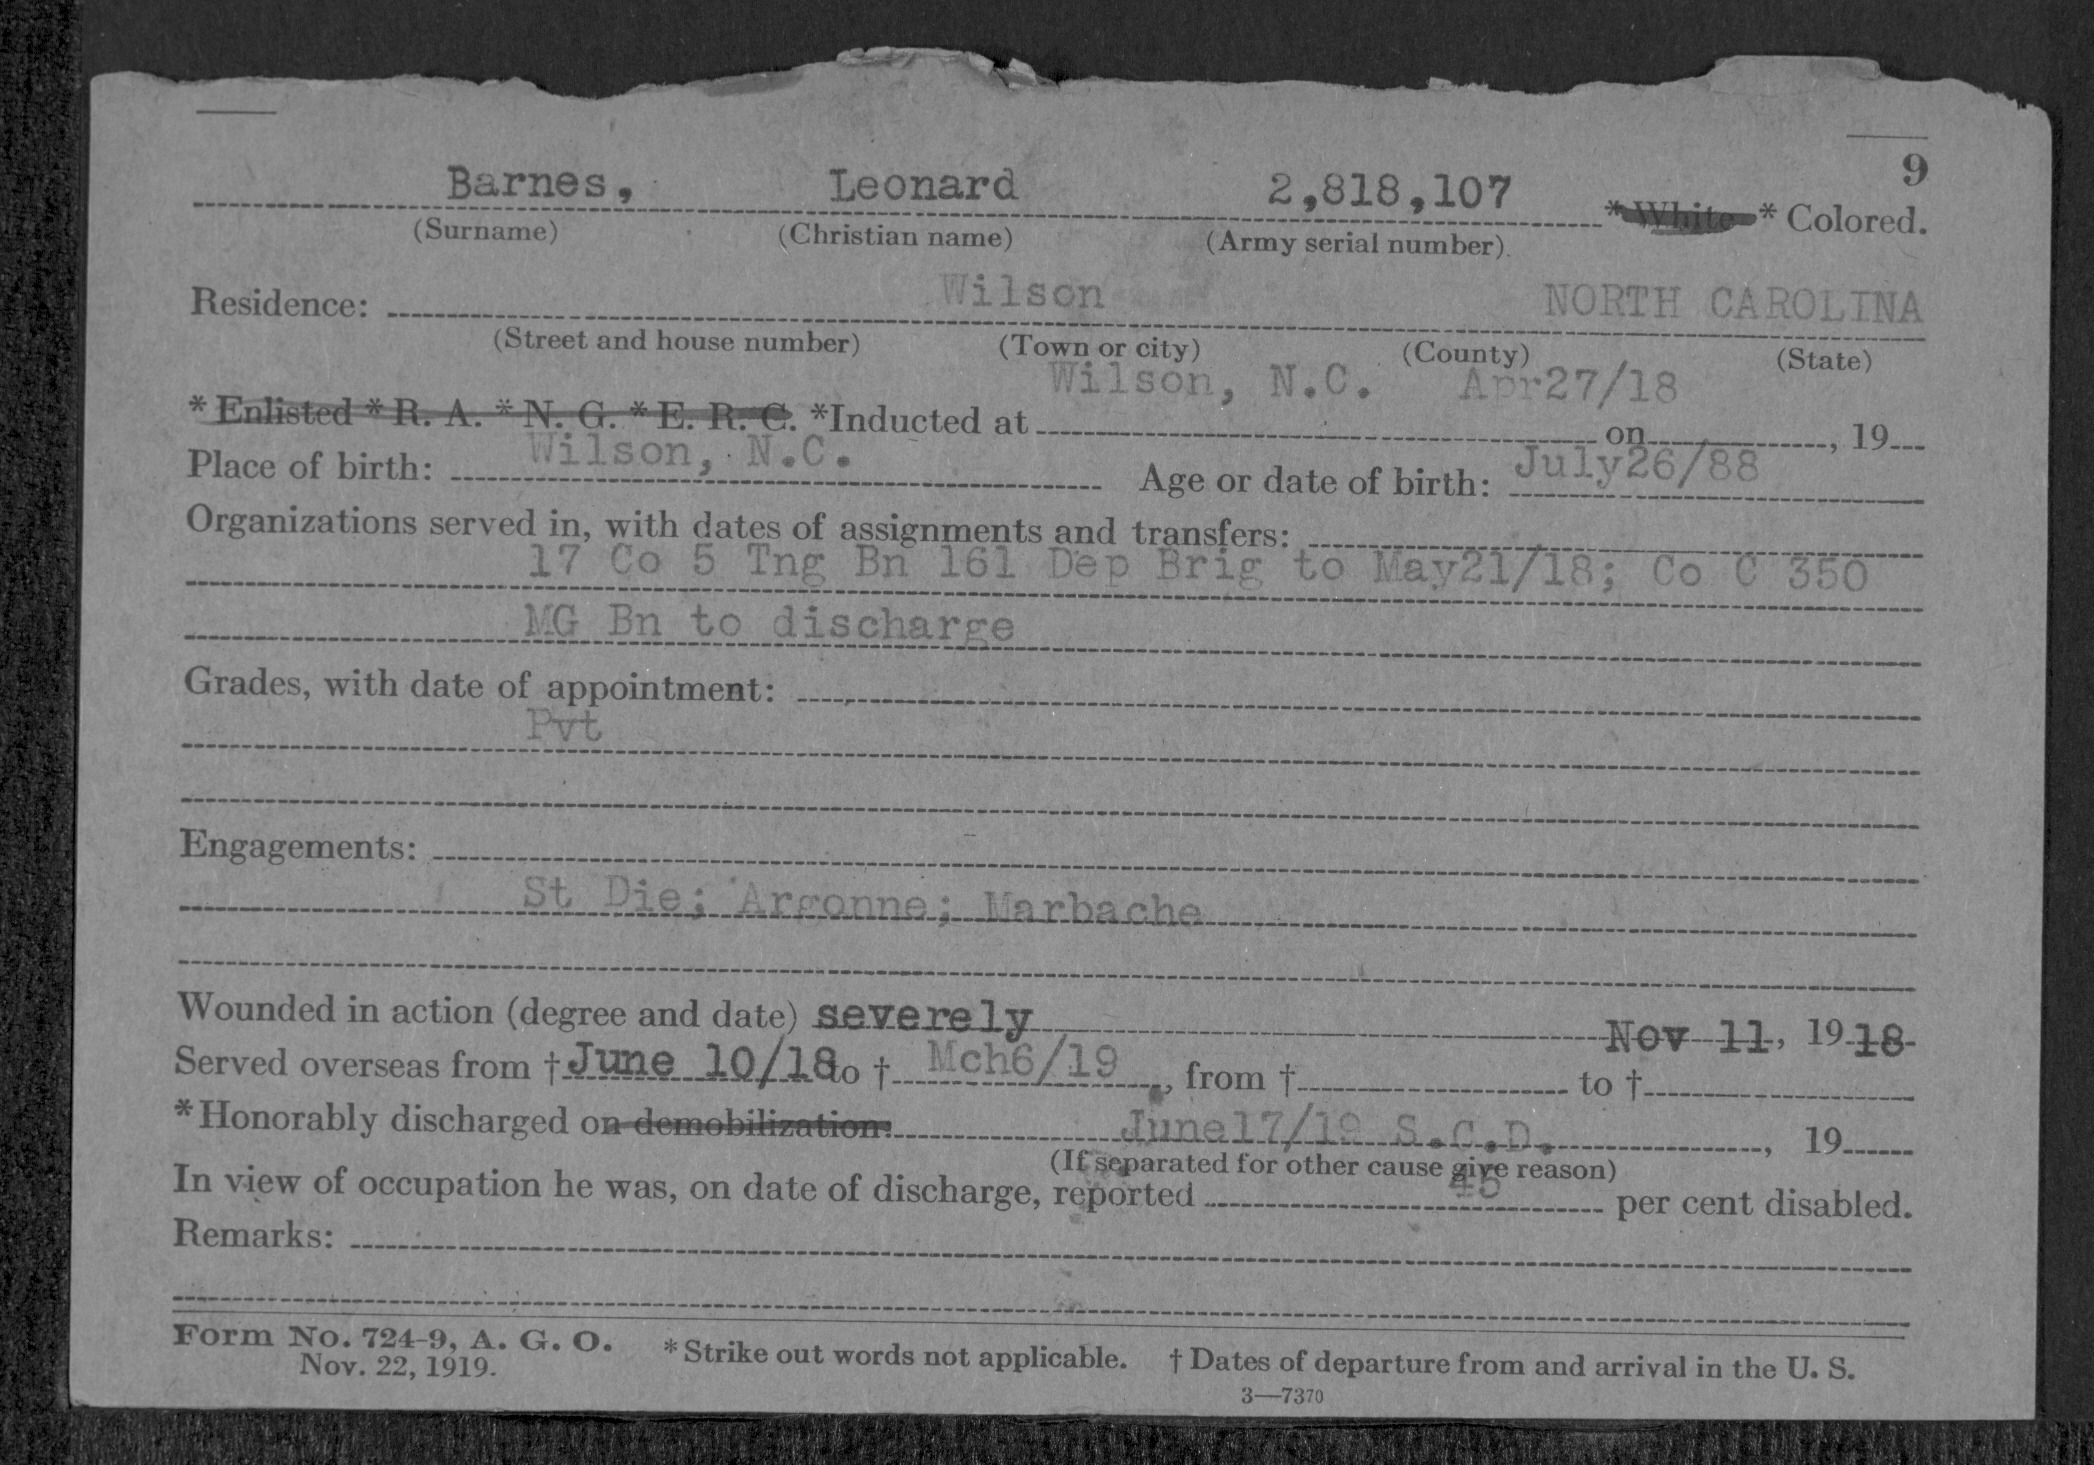 9
Barnes, Leonard 2,818,107 * White * Colored.
(Surname) (Christian name) (Army serial number)
Residence: Wilson NORTH CAROLINA
(Street and house number) (Town or city) (County) (State)
Wilson, N.C. Apr27/18
* Enlisted * R. A. * N. G. * E. R. C. *Inducted at on , 19
Wilson, N.C. July26/88
Place of birth: Age or date of birth:
Organizations served in, with dates of assignments and transfers:
17 Co 5 Tng Bn 161 Dep Brig to May21/18; Co C 350
MG Bn to discharge
Grades, with date of appointment:
Pvt
Engagements:
St Die; Argonne; Marbache
Wounded in action (degree and date) severely Nov 11, 19 18
Served overseas from † June 10/18 to † Mch6/19, from † to †
* Honorably discharged on demobilization. June17/19 S.C.D. , 19
(If separated for other cause give reason)
In view of occupation he was, on date of discharge, reported 45 per cent disabled.
Remarks:
Form No. 724-9, A. G. O. * Strike out words not applicable. † Dates of departure from and arrival in the U. S.
Nov. 22, 1919.
3—7370